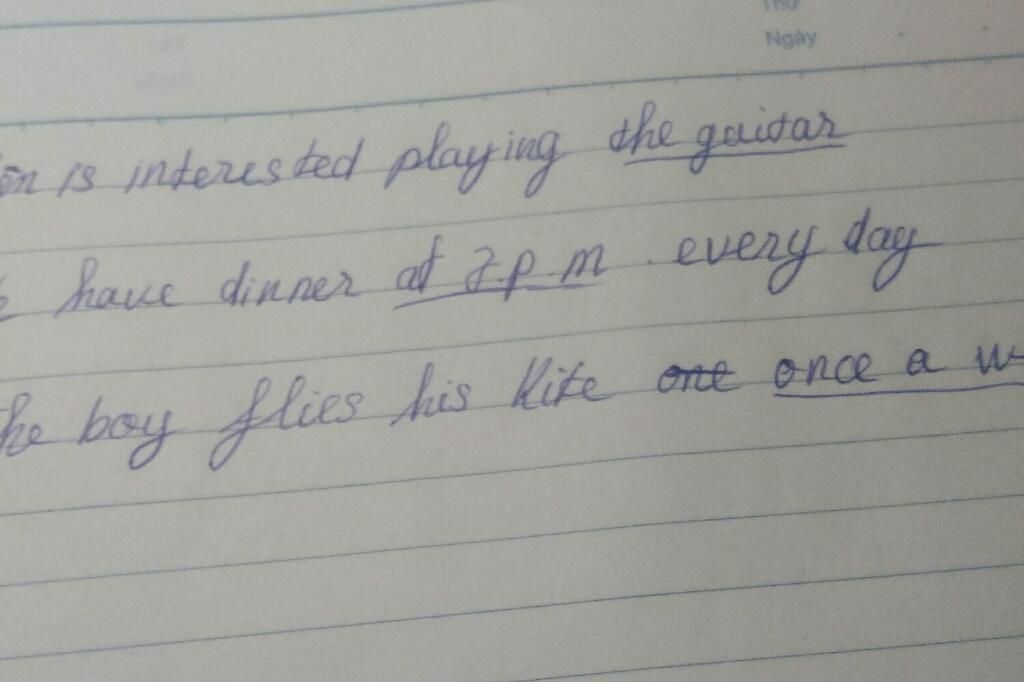 Thứ
Ngày
is interested playing the guitar
have dinner at 7.p.m. every day
he boy flies his kite one once a w